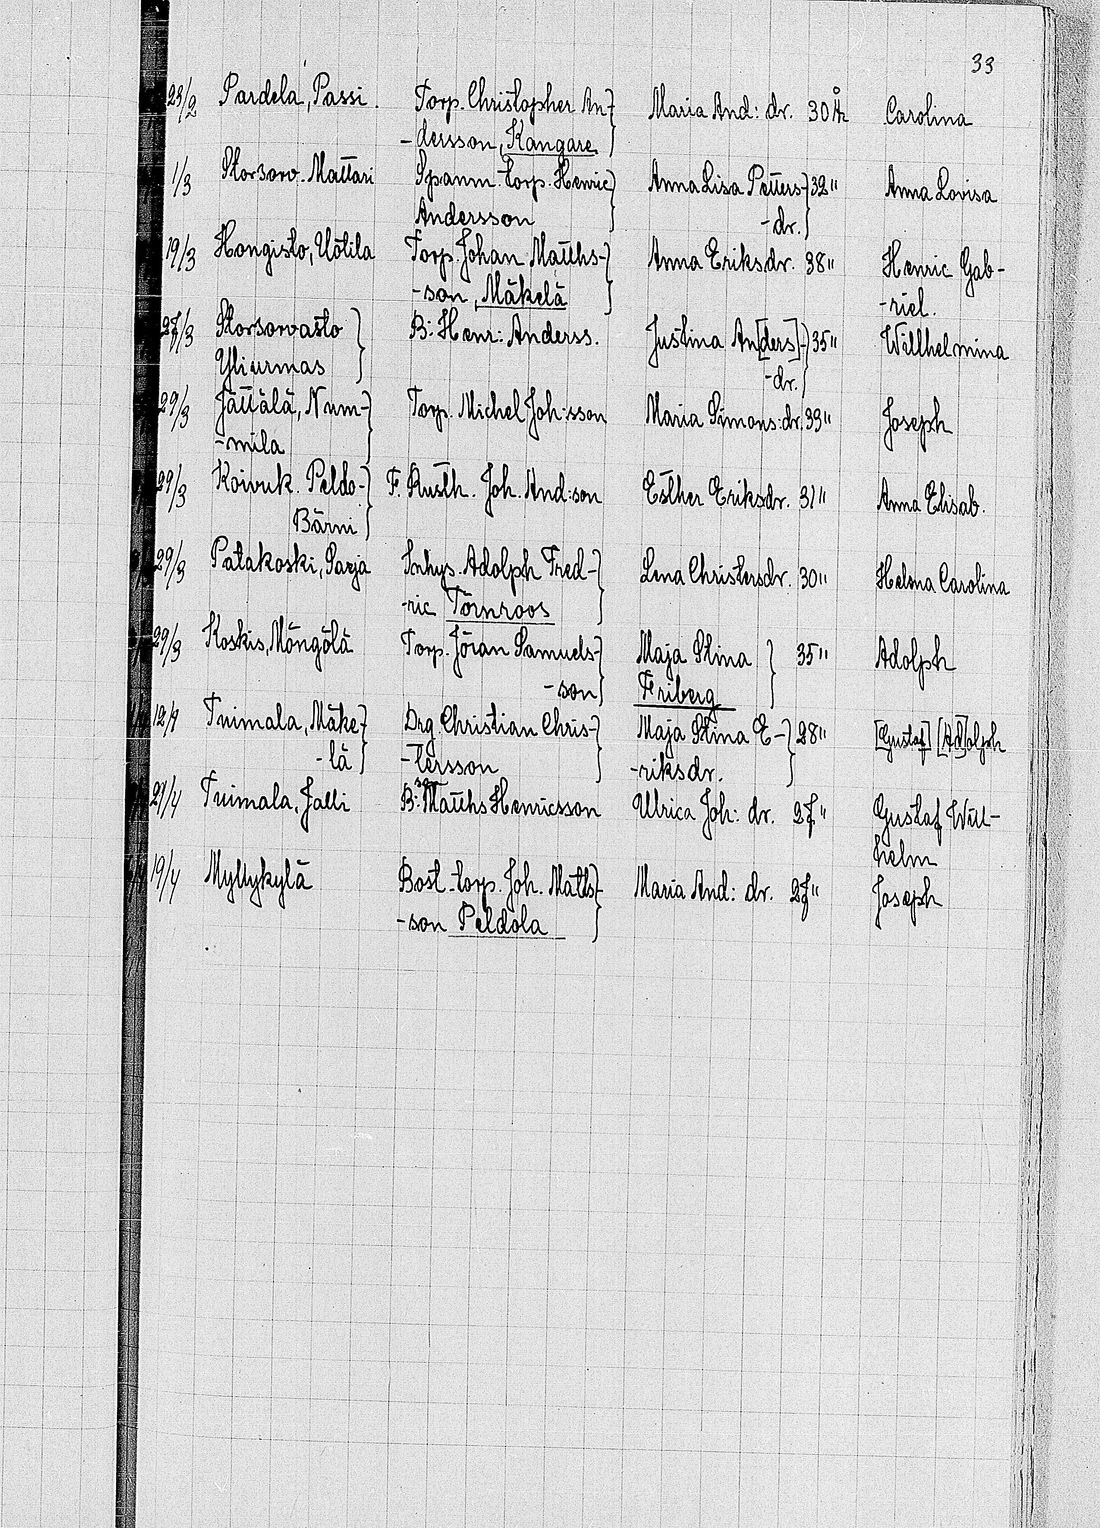 33
23/2 Pardela, Passi. Torp. Christopher An- Maria And: dr. 30 År Carolina
-dersson, Kangare
1/3 Storsarv. Mattari Spanm. torp. Henric Anna Lisa Petters- 32" Anna Lovisa
Andersson -dr.
19/3 Hongisto, Uotila Torp. Johan Matths- Anna Eriksdr. 38" Henric Gab-
-son, Mäkelä -riel.
27/3 Storsarvasto B: Henr: Anderss. Justina An[ders]- 35" Willhelmina
Yliurmas -dr.
29/3 Jättälä, Num- Torp. Michel Joh:sson Maria Simons:dr, 33" Joseph
-mila
29/3 Koivuk. Peldo- F. Rusth. Joh. And:son Esther Eriksdr. 31" Anna Elisab.
Bärni
29/3 Patakoski, Sarja Inhys. Adolph Fred- Lena Christersdr. 30" Helena Carolina
-ric Törnroos
29/3 Koskis, Möngölä Torp. Jöran Samuels- Maja Stina 35" Adolph
-son Friberg
Tuimala, Mäke- Drg. Christian Chris- Maja Stina E- 28" [Gustaf] [Ad]olph
-lä -tersson -riksdr.
Tuimala, Jalli B:son Matths Henricsson Ulrica Joh: dr. 27" Gustaf Will-
helm
19/4 Myllykylä Bost. torp. Joh. Matts- Maria And: dr. 27" Joseph
-son Peldola